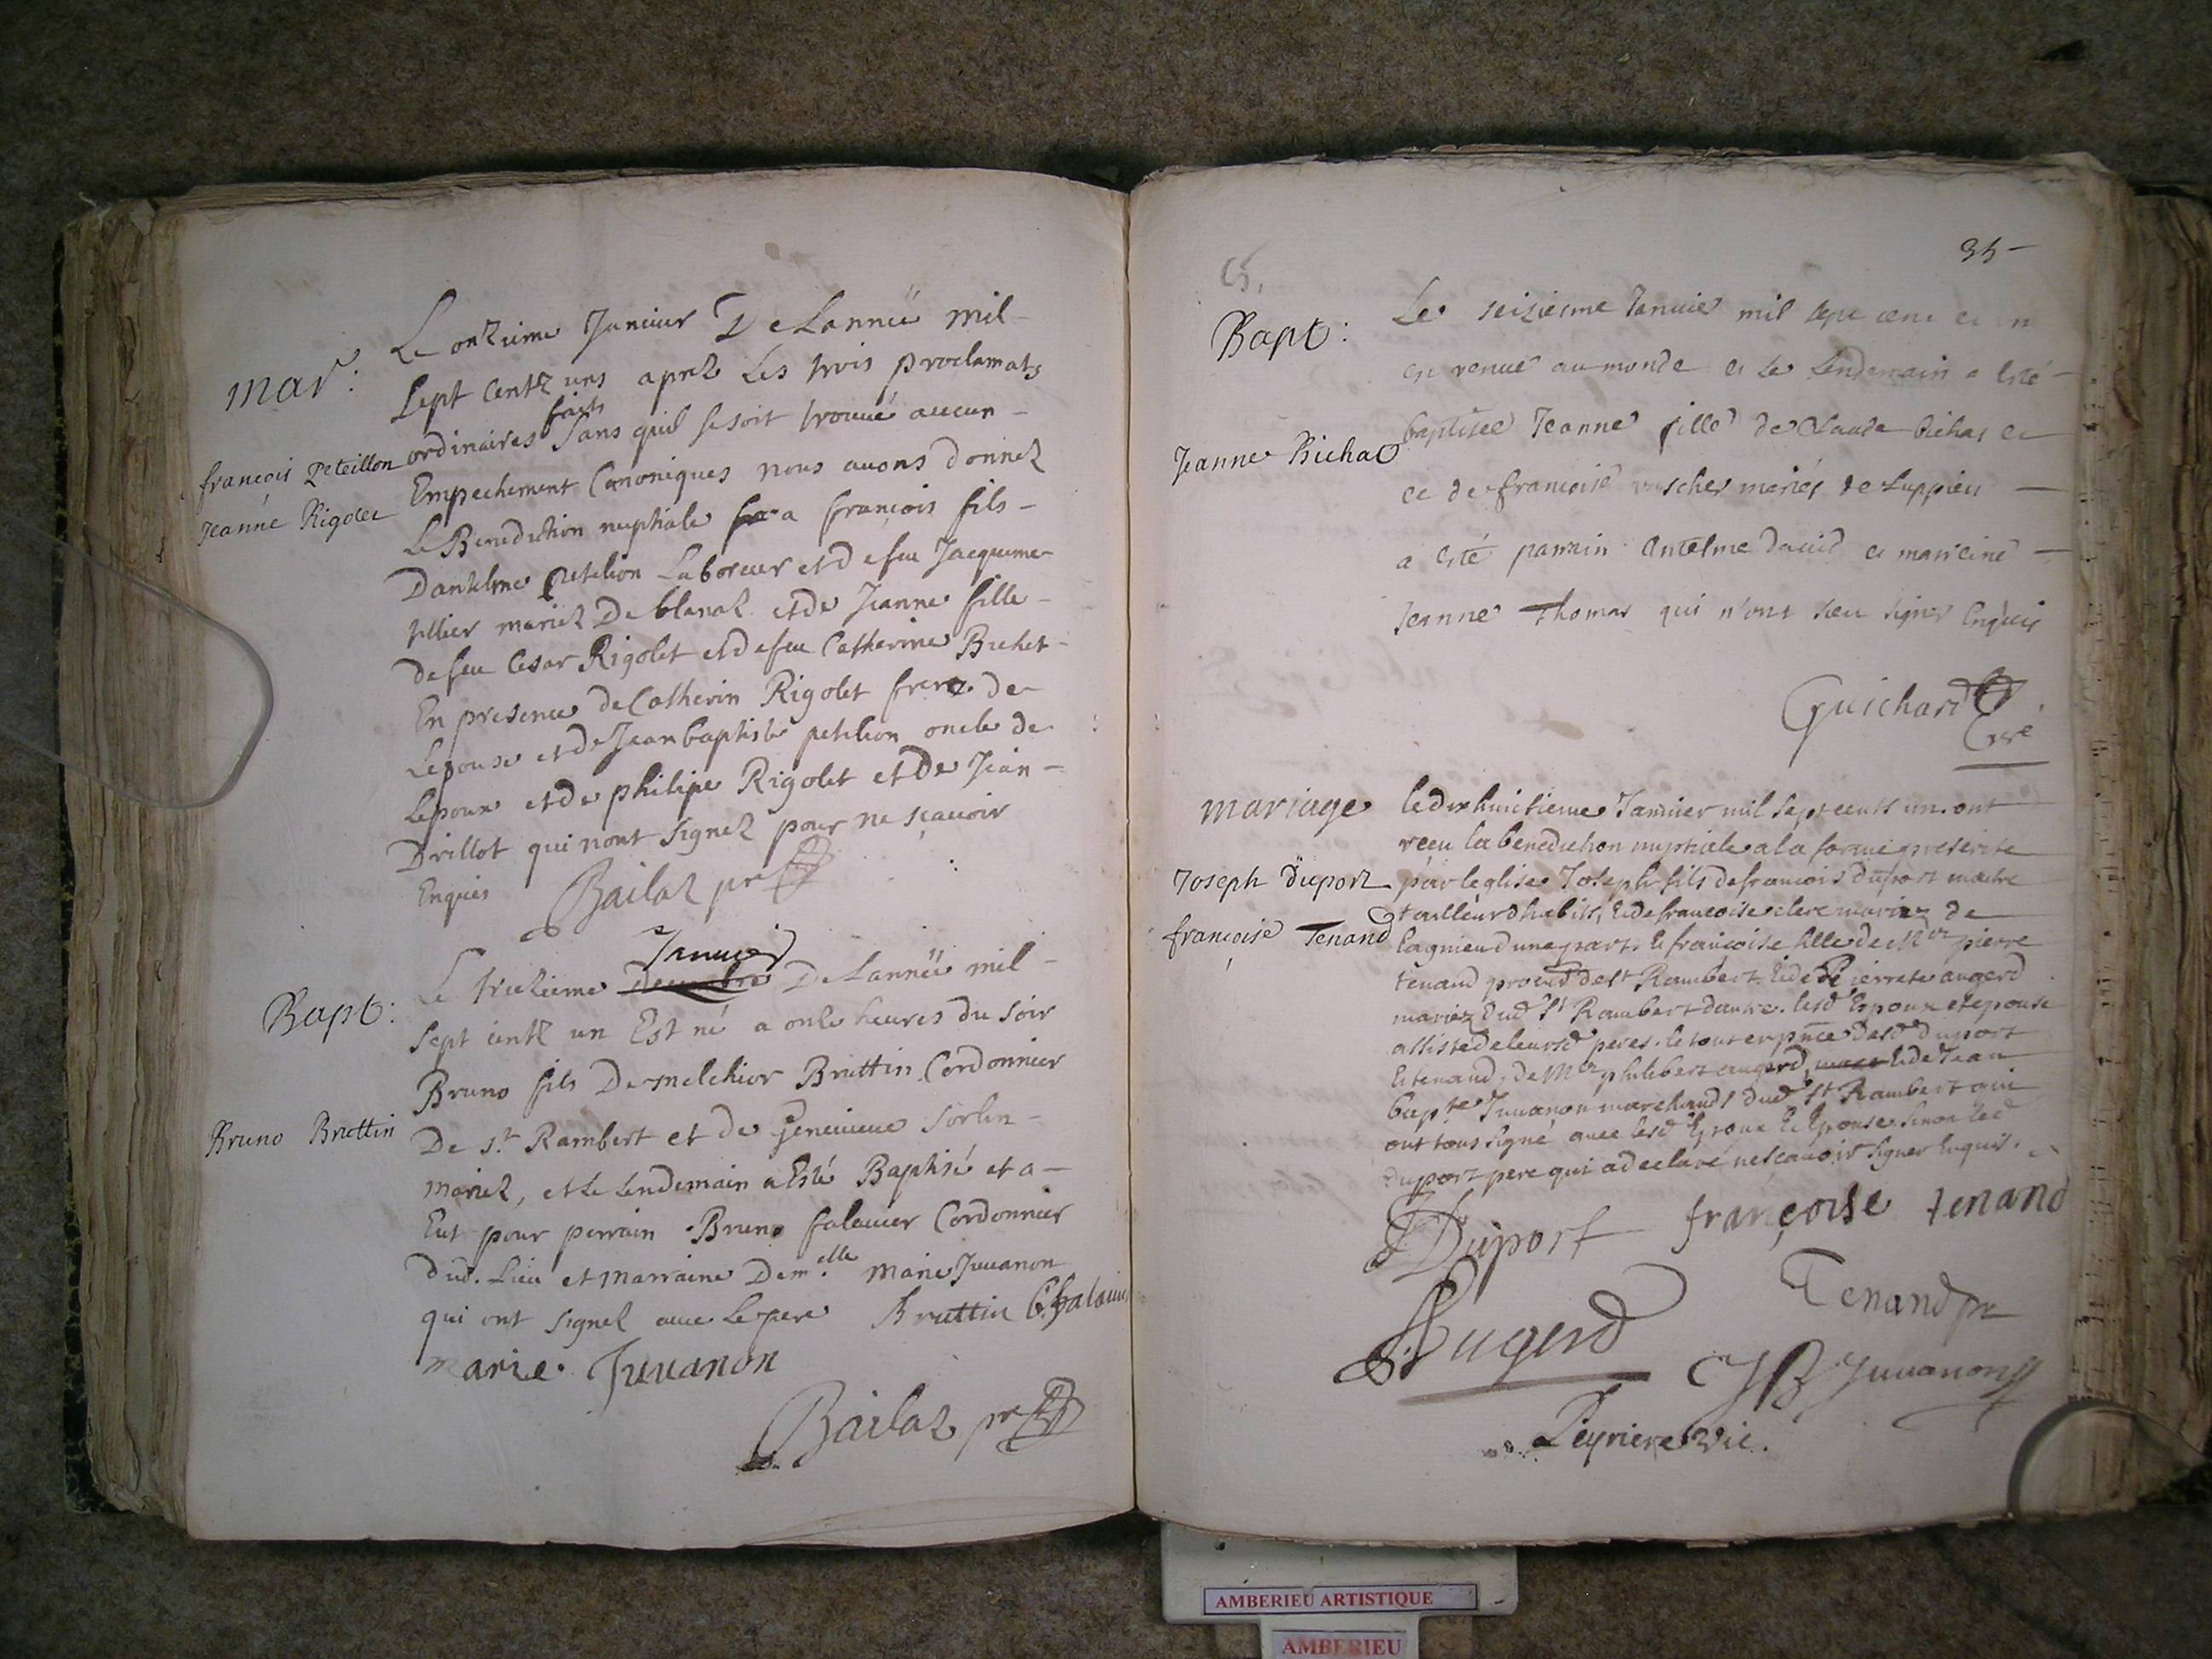 mar:
françois peteillon
Jeanne Rigolet
Le onzieme Januier De Lannëe mil
sept centz uns aprez Les trois proclamats
ordinaires faits sans quil se soit trouué aucun
Empechement Canoniques nous auons donnez
Le Benediction nuptiale a françois fils
Dantelme petelion Laboreur et de feu Jacqueme
tillier mariez De blanaz et de Jeanne fille
de feu Cesar Rigolet et de feu Catherine Buchet
En presence de Catherin Rigolet frere de
Lepouse et de Jean baptiste petelion oncle de
Lepoux et de philipe Rigolet et de Jean
Drillot qui nont signez pour ne sçauoir
Enquis
Bailaz pre
Bapt:
Bruno Bruttin
Le treizieme decembre Januier De Lannëe mil
sept centz un Est né a onze heures du soir
Bruno fils De melchior Bruttin Cordonnier
De st Rambert et de Geneuieue sorlin
mariez, et le lendemain a Esté Baptisé et a
Eut pour perrain Bruno falauier Cordonnier
dud. Lieu et marraine Demelle marie Juuanon
qui ont signez auec le pere Bruttin
marie Juuanon
Bailaz pre
35
Bapt:
Jeanne Bichat
Le seiziesme Januier mil sept cent et un
est venuë au monde et le Lendemain a esté
baptisée Jeanne fille de Claude bichat et
et de françoise mariés de Luppieu
a esté parrain Antelme dauid et marreine
Jeanne Thomas qui n'ont sceu signer Enquis
Guichard
Curé
mariage
Joseph Duport
françoise Tenand
le dix huictieme Januier mil sept cents un. ont
reçeu la benediction nuptiale a la forme prescrite
par leglise Joseph fils de francois duport maitre
tailleur d habits, & de françoise clerc mariez de
lagnieu d une part. & françoise fille de Mre pierre
tenand procur de st Rambert. & de Pierrete augerd
mariez dud st Rambert dautre. lesd Epoux et epouse
assisté de leursd peres. le tout en pnce desd duport
& tenand, de Mre philibert augerd, & de Jean
bapte Juuanon marchands dud st Rambert qui
ont tous signé auec lesd Epoux & Epouse sinon led
duport pere qui a declaré ne scauoir signer Enquis.
J Duport françoise tenand
Tenand pr
Augerd
J B Juuanon
Peyriere vic.
AMBERIEU ARTISTIQUE
AMBERIEU